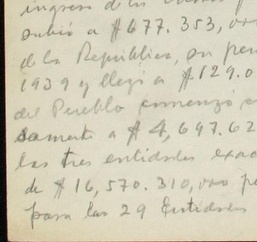 ingreso de los
subió a $677.353,00
de la República, su
1939 y llegó a $129.0
del Pueblo comenzó a
samente a $4,697.62
las tres entidades exac
de $16,570.310,00 p
para las 29 Entidades